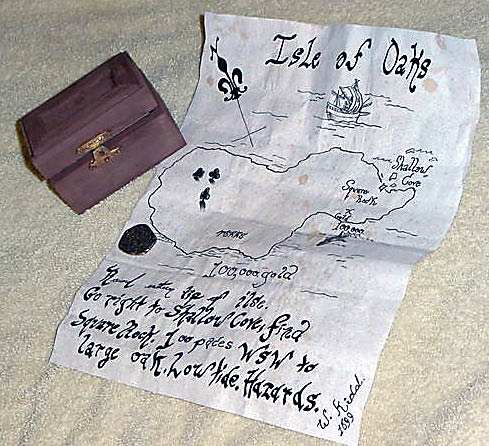 N
Isle of Oaks
Shallow
Cove
Square
Rock
100,000
100,000 gold
tip of isle.
Go right to Shallow Cove, find
Square Rock. 100 paces WSW to
large oak. Low tide. Hazards.
W. Kidd.
1699